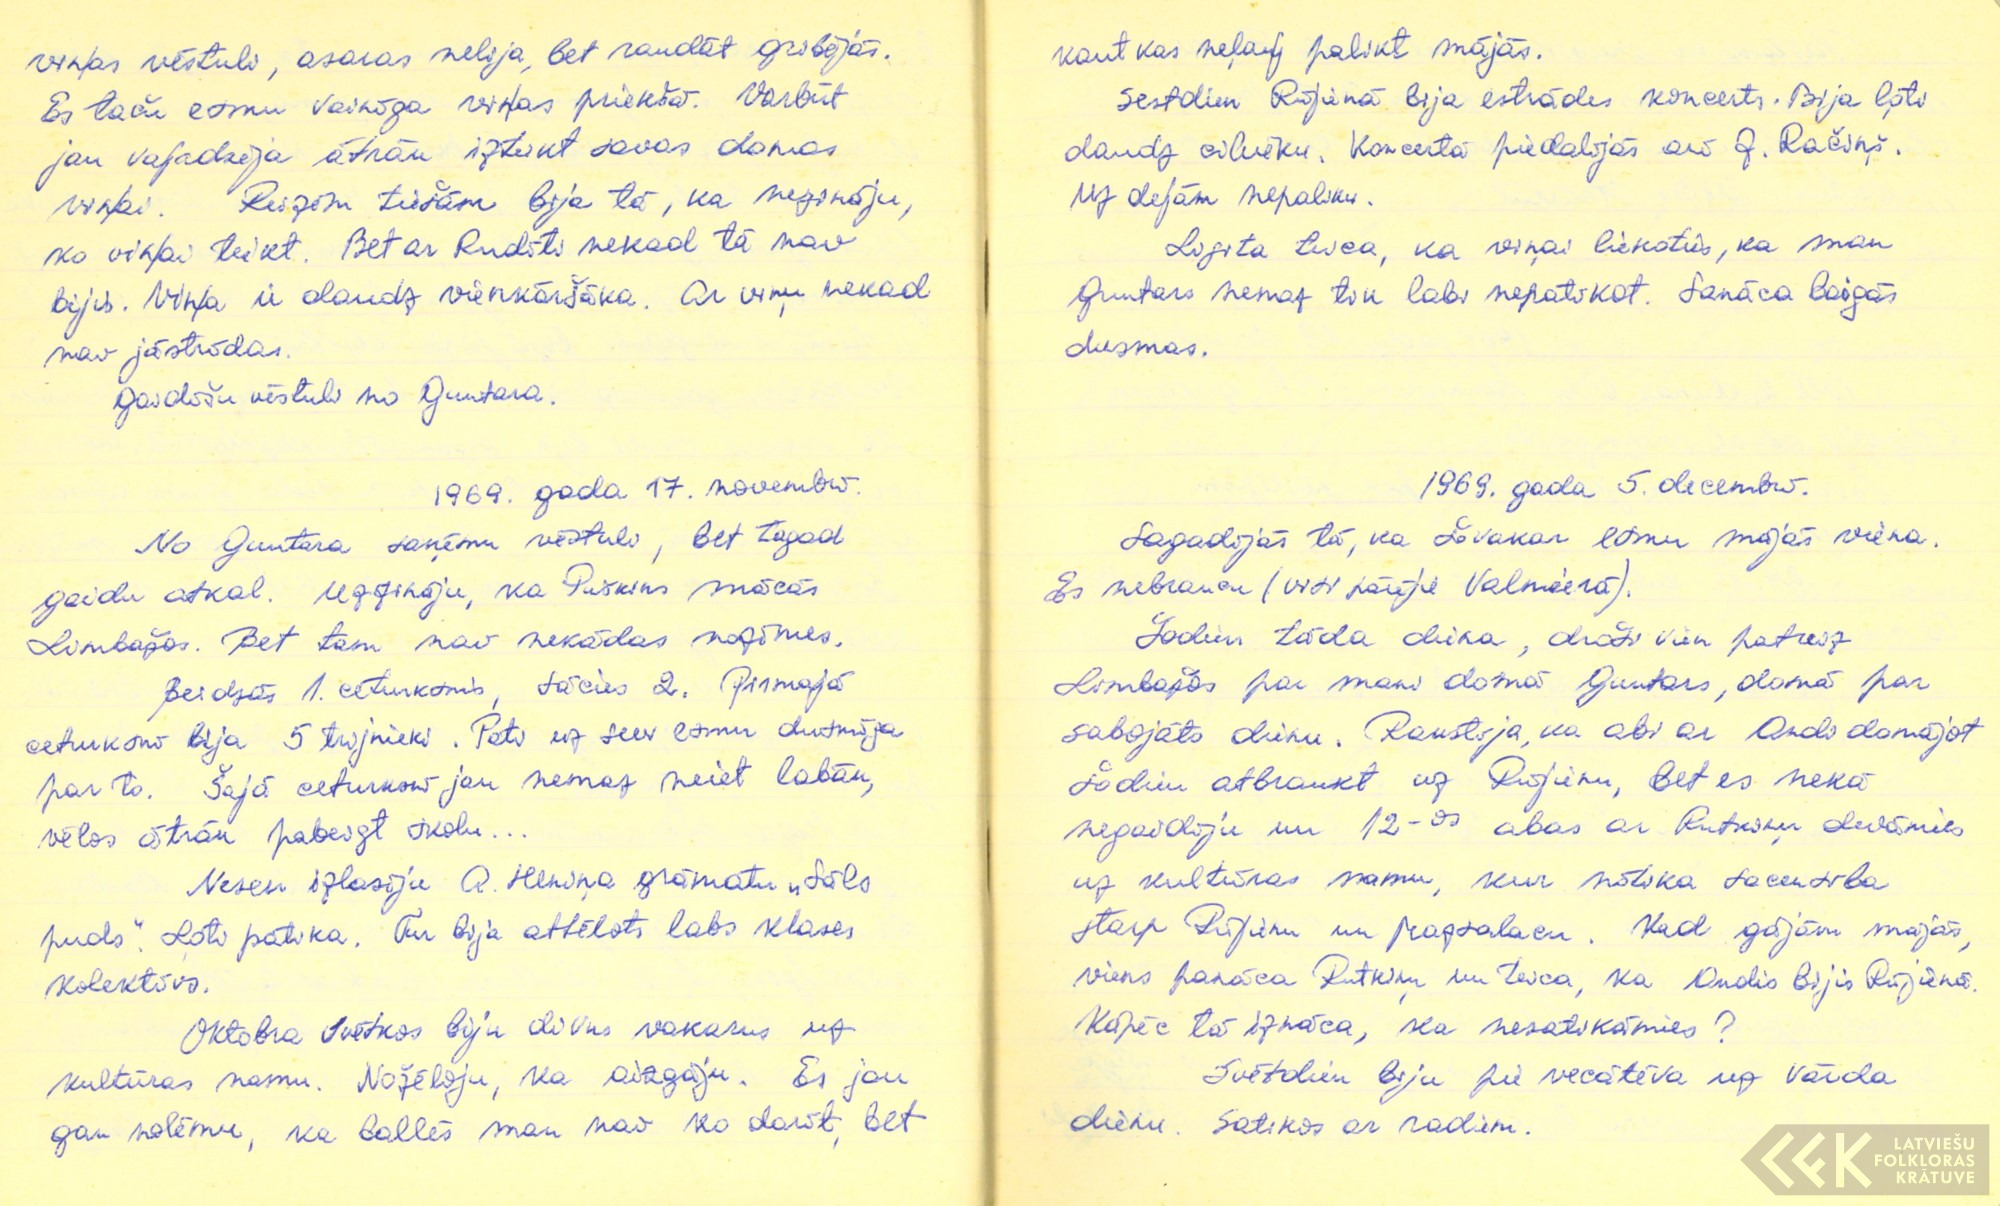 viņas vēstuli, asaras nelija, bet raudāt gribējās.
Es taču esmu vainīga viņas priekšā. Varbūt
jau vajadzēja ātrāk izteikt savas domas
viņai. Reizēm tiešām bija tā, ka nezināju,
ko viņai teikt. Bet ar Rudīti nekad tā nav
bijis. Viņa ir daudz vienkāršāka. Ar viņu nekad
nav jāstrīdas.
Gaidīšu vēstuli no Guntara.
1969. gada 17. novembrī.
No Guntara saņēmu vēstuli, bet tagad
gaidu atkal. Uzzināju, ka Puškins mācās
Limbažos. Bet tam nav nekādas nozīmes.
Beidzās 1. ceturksnis, sācies 2. Pirmajā
ceturksnī bija 5 trijnieki. Pati uz sevi esmu dusmīga
par to. Šajā ceturksnī jau nemaz neiet labāk,
vēlos ātrāk pabeigt skolu...
Nesen izlasīju A. Meniņa grāmatu „Sāls
puds”. Ļoti patika. Tur bija attēlots labs klases
kolektīvs.
Oktobra svētkos biju divus vakarus uz
kultūras namu. Nožēloju, ka aizgāju. Es jau
gan nolēmu, ka ballēs man nav ko darīt, bet
kaut kas neļauj palikt mājās.
Sestdien Rūjienā bija estrādes koncerts. Bija ļoti
daudz cilvēku. Koncertā piedalījās arī J. Račiņš.
Uz dejām nepaliku.
Ligita teica, ka viņai liekoties, ka man
Guntars nemaz tik labi nepatikot. Sanāca baigās
dusmas.
1969. gada 5. decembrī.
Sagadījās tā, ka šovakar esmu mājās viena.
Es nebraucu (visi pārējie Valmierā).
Šodien tāda diena, droši vien patreiz
Limbažos par mani domā Guntars, domā par
sabojāto dienu. Rakstīja, ka abi ar Andi domājot
šodien atbraukt uz Rūjienu, bet es nekā
negaidīju un 12-os abas ar Rutkiņu devāmies
uz kultūras namu, kur notika sacensība
starp Rūjienu un Mazsalacu. Kad gājām mājās,
viens panāca Rutkiņu un teica, ka Andis bijis Rūjienā.
Kāpēc tā iznāca, ka nesatikāmies?
Svētdien biju pie vecātēva uz vārda
dienu. Satikos ar radiem.
LATVIEŠU
FOLKLORAS
KRĀTUVE